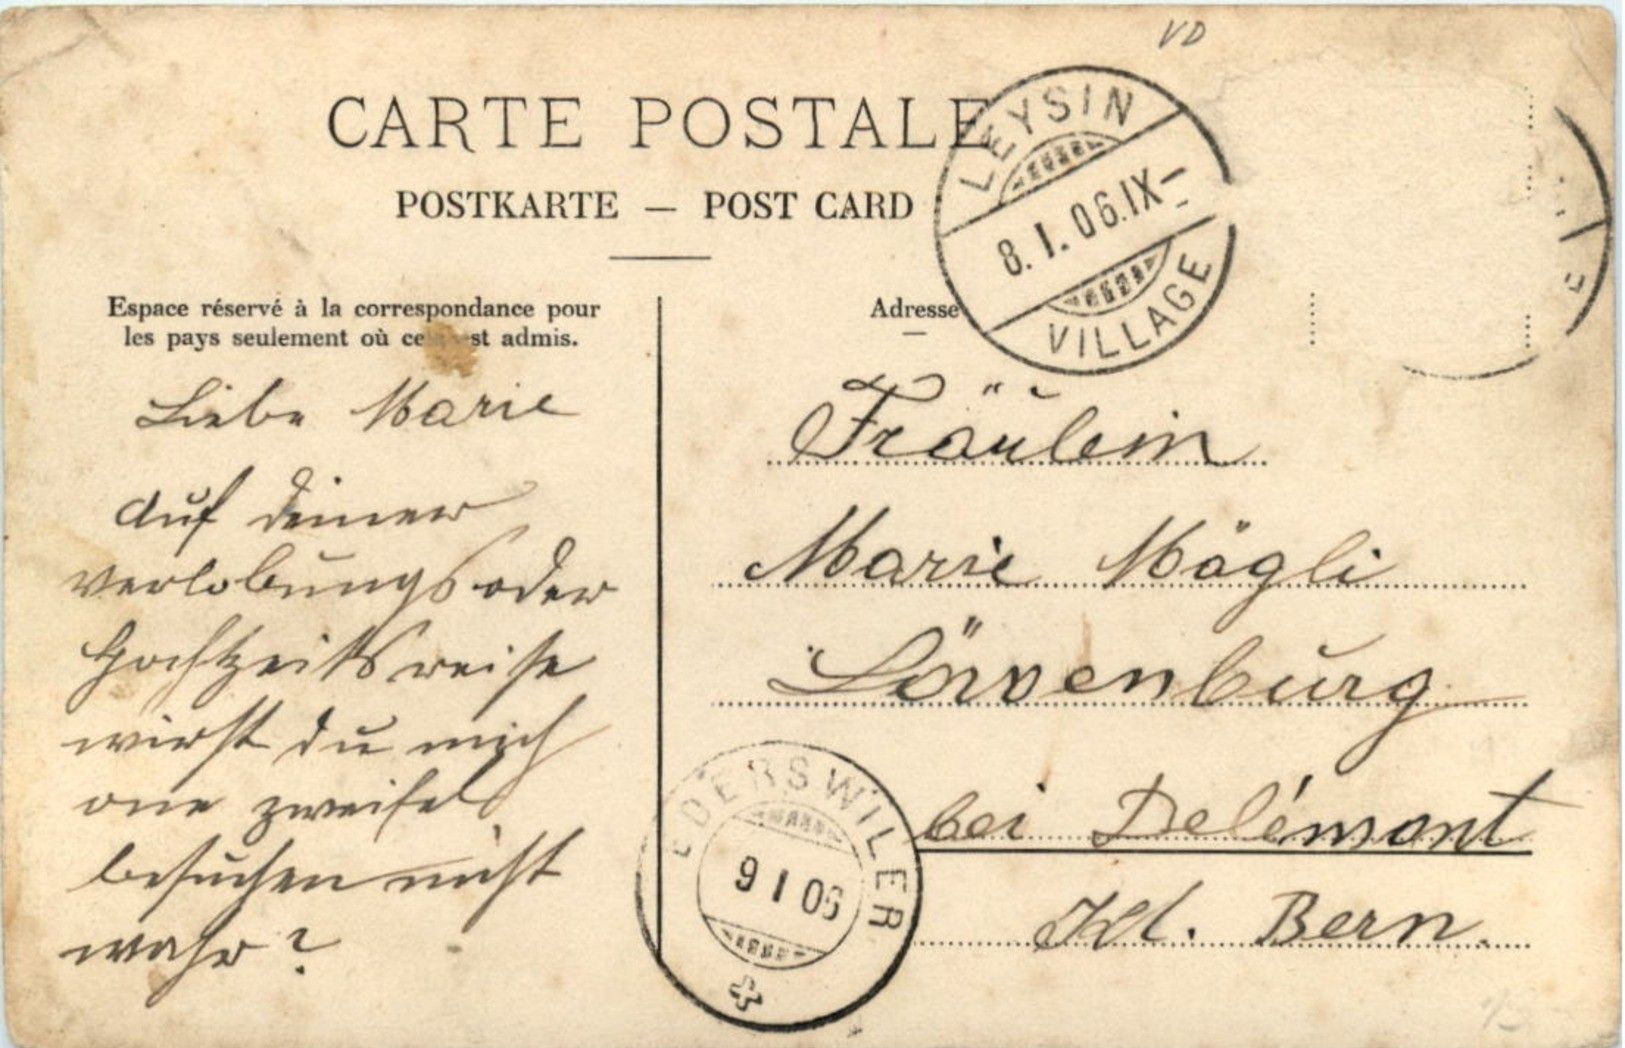 VD
CARTE POSTALE
POSTKARTE — POST CARD
LEYSIN
8. I. 06. IX-
VILLAGE
Espace réservé à la correspondance pour
les pays seulement où cela est admis.
Adresse
Liebe Marie
Auf deiner
verlobungs oder
Hochzeitsreise
wirst du mich
one zweifel
besuchen nicht
wahr?
Fräulein
Marie Mägli
Löwenburg
bei Delémont
Kt. Bern.
EDERSWILER
9 I 06